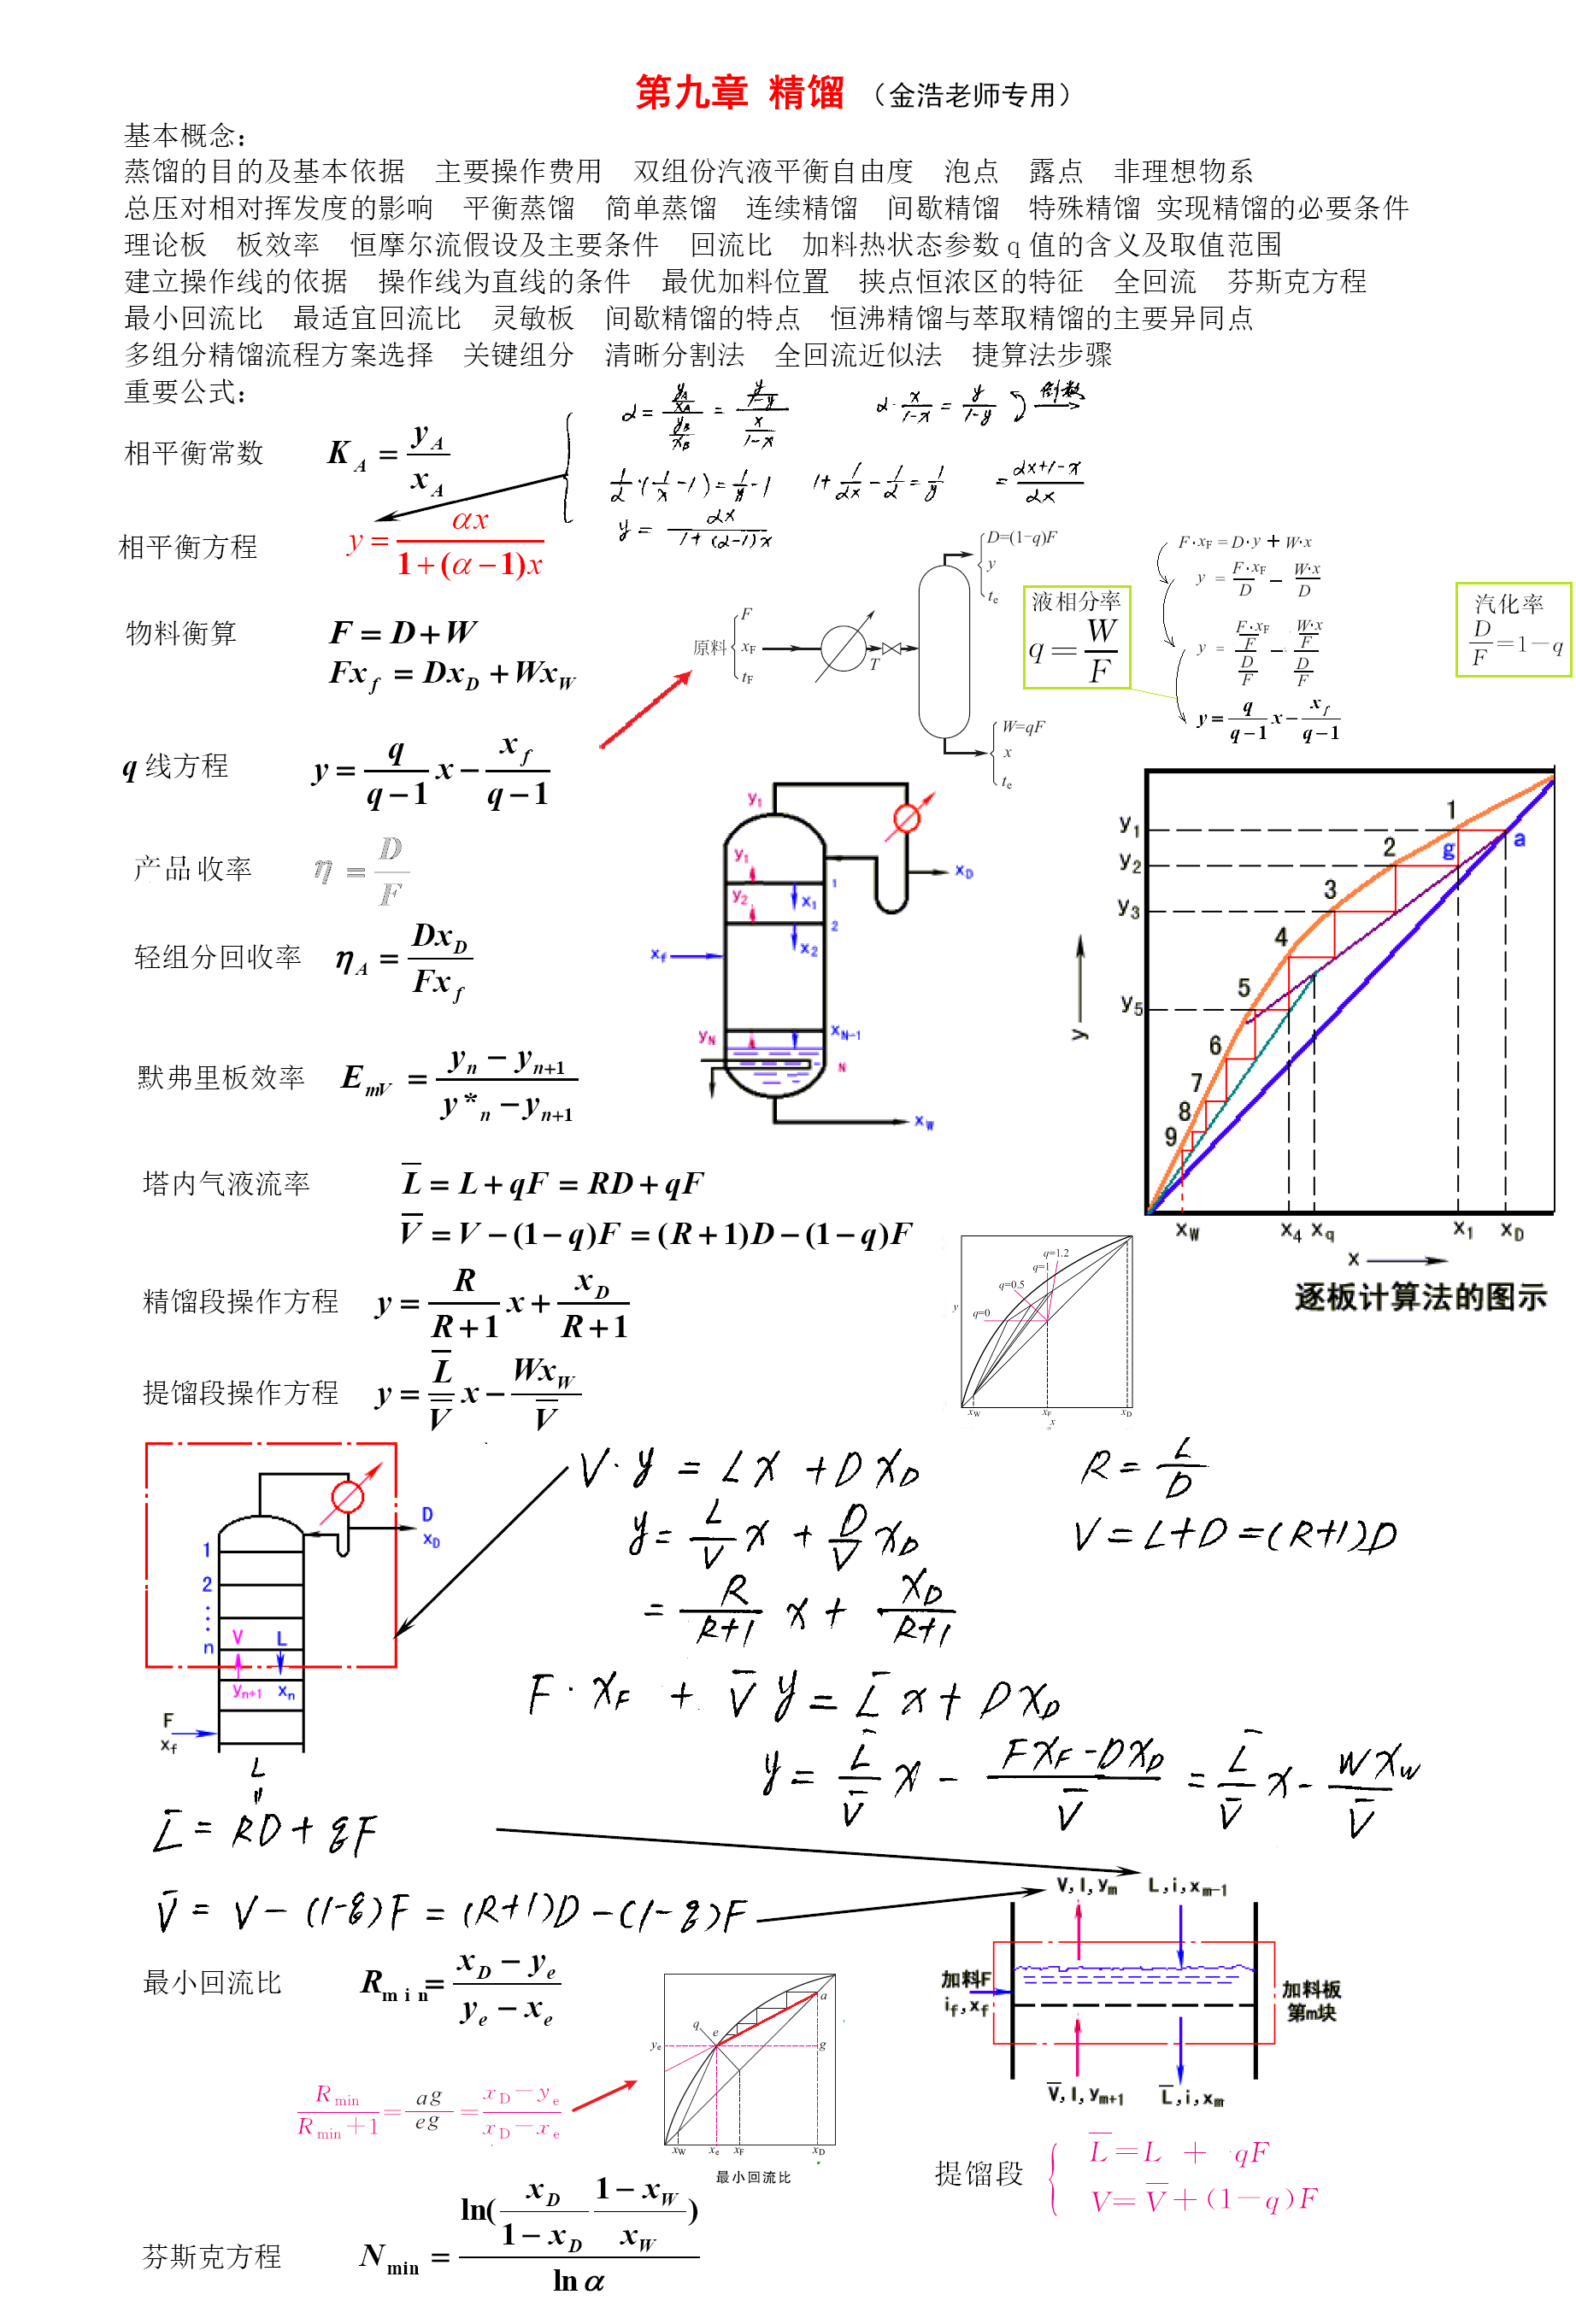 第九章 精馏 （金浩老师专用）
基本概念：
蒸馏的目的及基本依据 主要操作费用 双组份汽液平衡自由度 泡点 露点 非理想物系
总压对相对挥发度的影响 平衡蒸馏 简单蒸馏 连续精馏 间歇精馏 特殊精馏 实现精馏的必要条件
理论板 板效率 恒摩尔流假设及主要条件 回流比 加料热状态参数 q 值的含义及取值范围
建立操作线的依据 操作线为直线的条件 最优加料位置 挟点恒浓区的特征 全回流 芬斯克方程
最小回流比 最适宜回流比 灵敏板 间歇精馏的特点 恒沸精馏与萃取精馏的主要异同点
多组分精馏流程方案选择 关键组分 清晰分割法 全回流近似法 捷算法步骤
重要公式：
α = (y_A/x_A)/(y_B/x_B) = (y/(1-y))/(x/(1-x))
α·x/(1-x) = y/(1-y) 倒数
相平衡常数 K_A = y_A/x_A
1/α·(1/x-1) = 1/y-1 1+1/(αx)-1/α = 1/y = (αx+1-x)/(αx)
y = αx/(1+(α-1)x)
相平衡方程 y = αx/(1+(α-1)x)
D=(1-q)F
y
t_e
原料 F
x_F
t_F
T
W=qF
x
t_e
液相分率
q = W/F
F·x_F = D·y + W·x
y = F·x_F/D - W·x/D
y = (F·x_F/F)/(D/F) - (W·x/F)/(D/F)
y = q/(q-1) x - x_f/(q-1)
汽化率
D/F = 1-q
物料衡算 F = D+W
Fx_f = Dx_D + Wx_W
q 线方程 y = q/(q-1) x - x_f/(q-1)
产品收率 η = D/F
轻组分回收率 η_A = Dx_D/Fx_f
默弗里板效率 E_mV = (y_n - y_n+1)/(y*_n - y_n+1)
y1
y1
y2
x1
x2
1
2
xf
xD
yN
xN-1
N
xW
y1
y2
y3
y5
y
1
2
3
4
5
6
7
8
9
g
a
xW x4 xq x1 xD
x
逐板计算法的图示
塔内气液流率 L̅ = L + qF = RD + qF
V̅ = V - (1-q)F = (R+1)D - (1-q)F
精馏段操作方程 y = R/(R+1) x + x_D/(R+1)
提馏段操作方程 y = L̅/V̅ x - Wx_W/V̅
q=1.2
q=1
q=0.5
q=0
y
x_W x_F x_D
x
V·y = Lx + Dx_D R = L/D
y = L/V x + D/V x_D V = L+D = (R+1)D
= R/(R+1) x + x_D/(R+1)
F·x_F + V̅y = L̅x + Dx_D
y = L̅/V̅ x - (Fx_F - Dx_D)/V̅ = L̅/V̅ x - Wx_W/V̅
D
xD
1
2
n
V L
yn+1 xn
F
xf
L
L̅ = RD + qF
V̅ = V - (1-q)F = (R+1)D - (1-q)F
V,I,ym L,i,xm-1
加料F
if,xf
加料板
第m块
V̅,I,ym+1 L̅,i,xm
最小回流比 R_min = (x_D - y_e)/(y_e - x_e)
R_min/(R_min+1) = ag/eg = (x_D - y_e)/(x_D - x_e)
q
e
a
y_e
g
x_W x_e x_F x_D
最小回流比
提馏段 L̅ = L + qF
V = V̅ + (1-q)F
芬斯克方程 N_min = ln(x_D/(1-x_D) (1-x_W)/x_W)/ln α